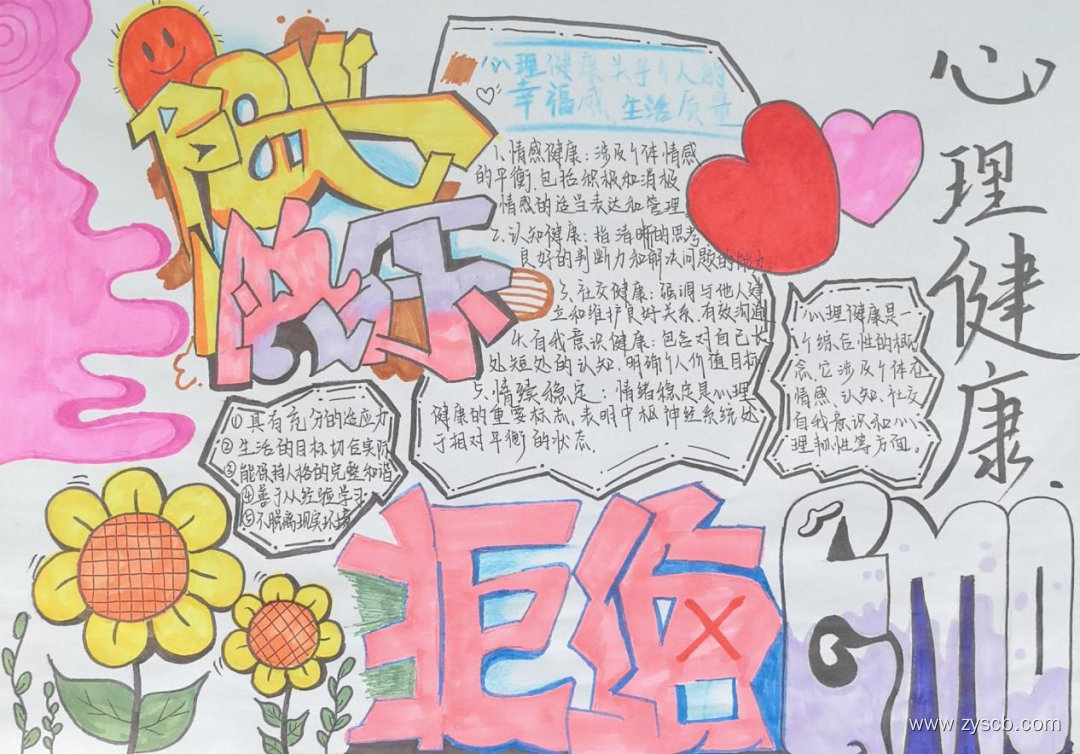 阳光
快乐
心理健康关乎个人的
幸福感、生活质量
1.情感健康：涉及个体情感
的平衡，包括积极和消极
情感的适当表达和管理。
2.认知健康：指清晰的思考
良好的判断力和解决问题的能力。
3.社交健康：强调与他人建
立和维护良好关系，有效沟通
4.自我意识健康：包含对自己长
处短处的认知，明确个人价值目标
5.情绪稳定：情绪稳定是心理
健康的重要标志，表明中枢神经系统处
于相对平衡的状态.
心理健康.
心理健康是一
个综合性的概
念,它涉及个体在
情感、认知、社交
自我意识和心
理韧性等方面。
①具有充分的适应力
②生活的目标切合实际
③能保持人格的完整和谐
④善于从经验学习
⑤不脱离现实环境
拒绝
emo
www.zyscb.com